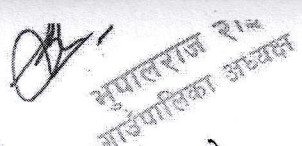 भुपालराज
गाउँपालिका अध्यक्ष